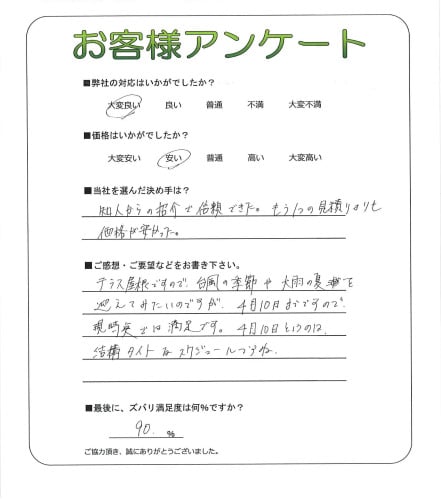 お客様アンケート
■弊社の対応はいかがでしたか？
大変良い 良い 普通 不満 大変不満
■価格はいかがでしたか？
大変安い 安い 普通 高い 大変高い
■当社を選んだ決め手は？
知人からの紹介で信頼できた。もう1つの見積りよりも
価格が安かった。
■ご感想・ご要望などをお書き下さい。
テラス屋根ですので、台風の季節や大雨の夏を
迎えてみたいのですが、4月10日までですので
現時点では満足です。4月10日というのは、
結構タイトなスケジュールですね。
■最後に、ズバリ満足度は何%ですか？
90. %
ご協力頂き、誠にありがとうございました。